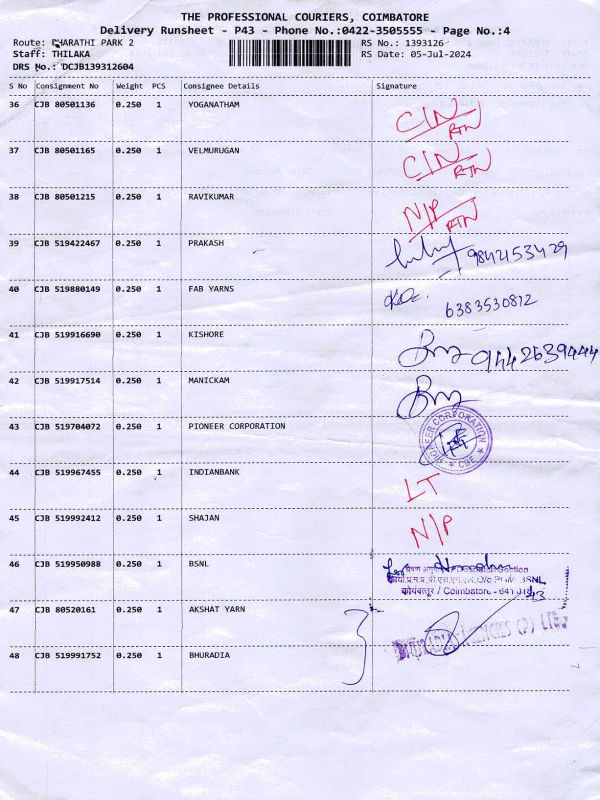 THE PROFESSIONAL COURIERS, COIMBATORE
Delivery Runsheet - P43 - Phone No.:0422-3505555 - Page No.:4
Route: BHARATHI PARK 2 RS No.: 1393126
Staff: THILAKA RS Date: 05-Jul-2024
DRS No.: DCJB139312604
S No Consignment No Weight PCS Consignee Details Signature
36 CJB 80501136 0.250 1 YOGANATHAM CIN/RTN
37 CJB 80501165 0.250 1 VELMURUGAN CIN/RTN
38 CJB 80501215 0.250 1 RAVIKUMAR N/P RTN
39 CJB 519422467 0.250 1 PRAKASH 9842153429
40 CJB 519880149 0.250 1 FAB YARNS 6383530812
41 CJB 519916690 0.250 1 KISHORE 9442639444
42 CJB 519917514 0.250 1 MANICKAM
43 CJB 519704072 0.250 1 PIONEER CORPORATION PIONEER CORPORATION * CBE *
44 CJB 519967455 0.250 1 INDIANBANK LT
45 CJB 519992412 0.250 1 SHAJAN N/P
46 CJB 519950988 0.250 1 BSNL
BSNL
कोयंबत्तूर / Coimbatore - 641 043
47 CJB 80520161 0.250 1 AKSHAT YARN
BHURADIA AGENCIES (P) LTD
48 CJB 519991752 0.250 1 BHURADIA